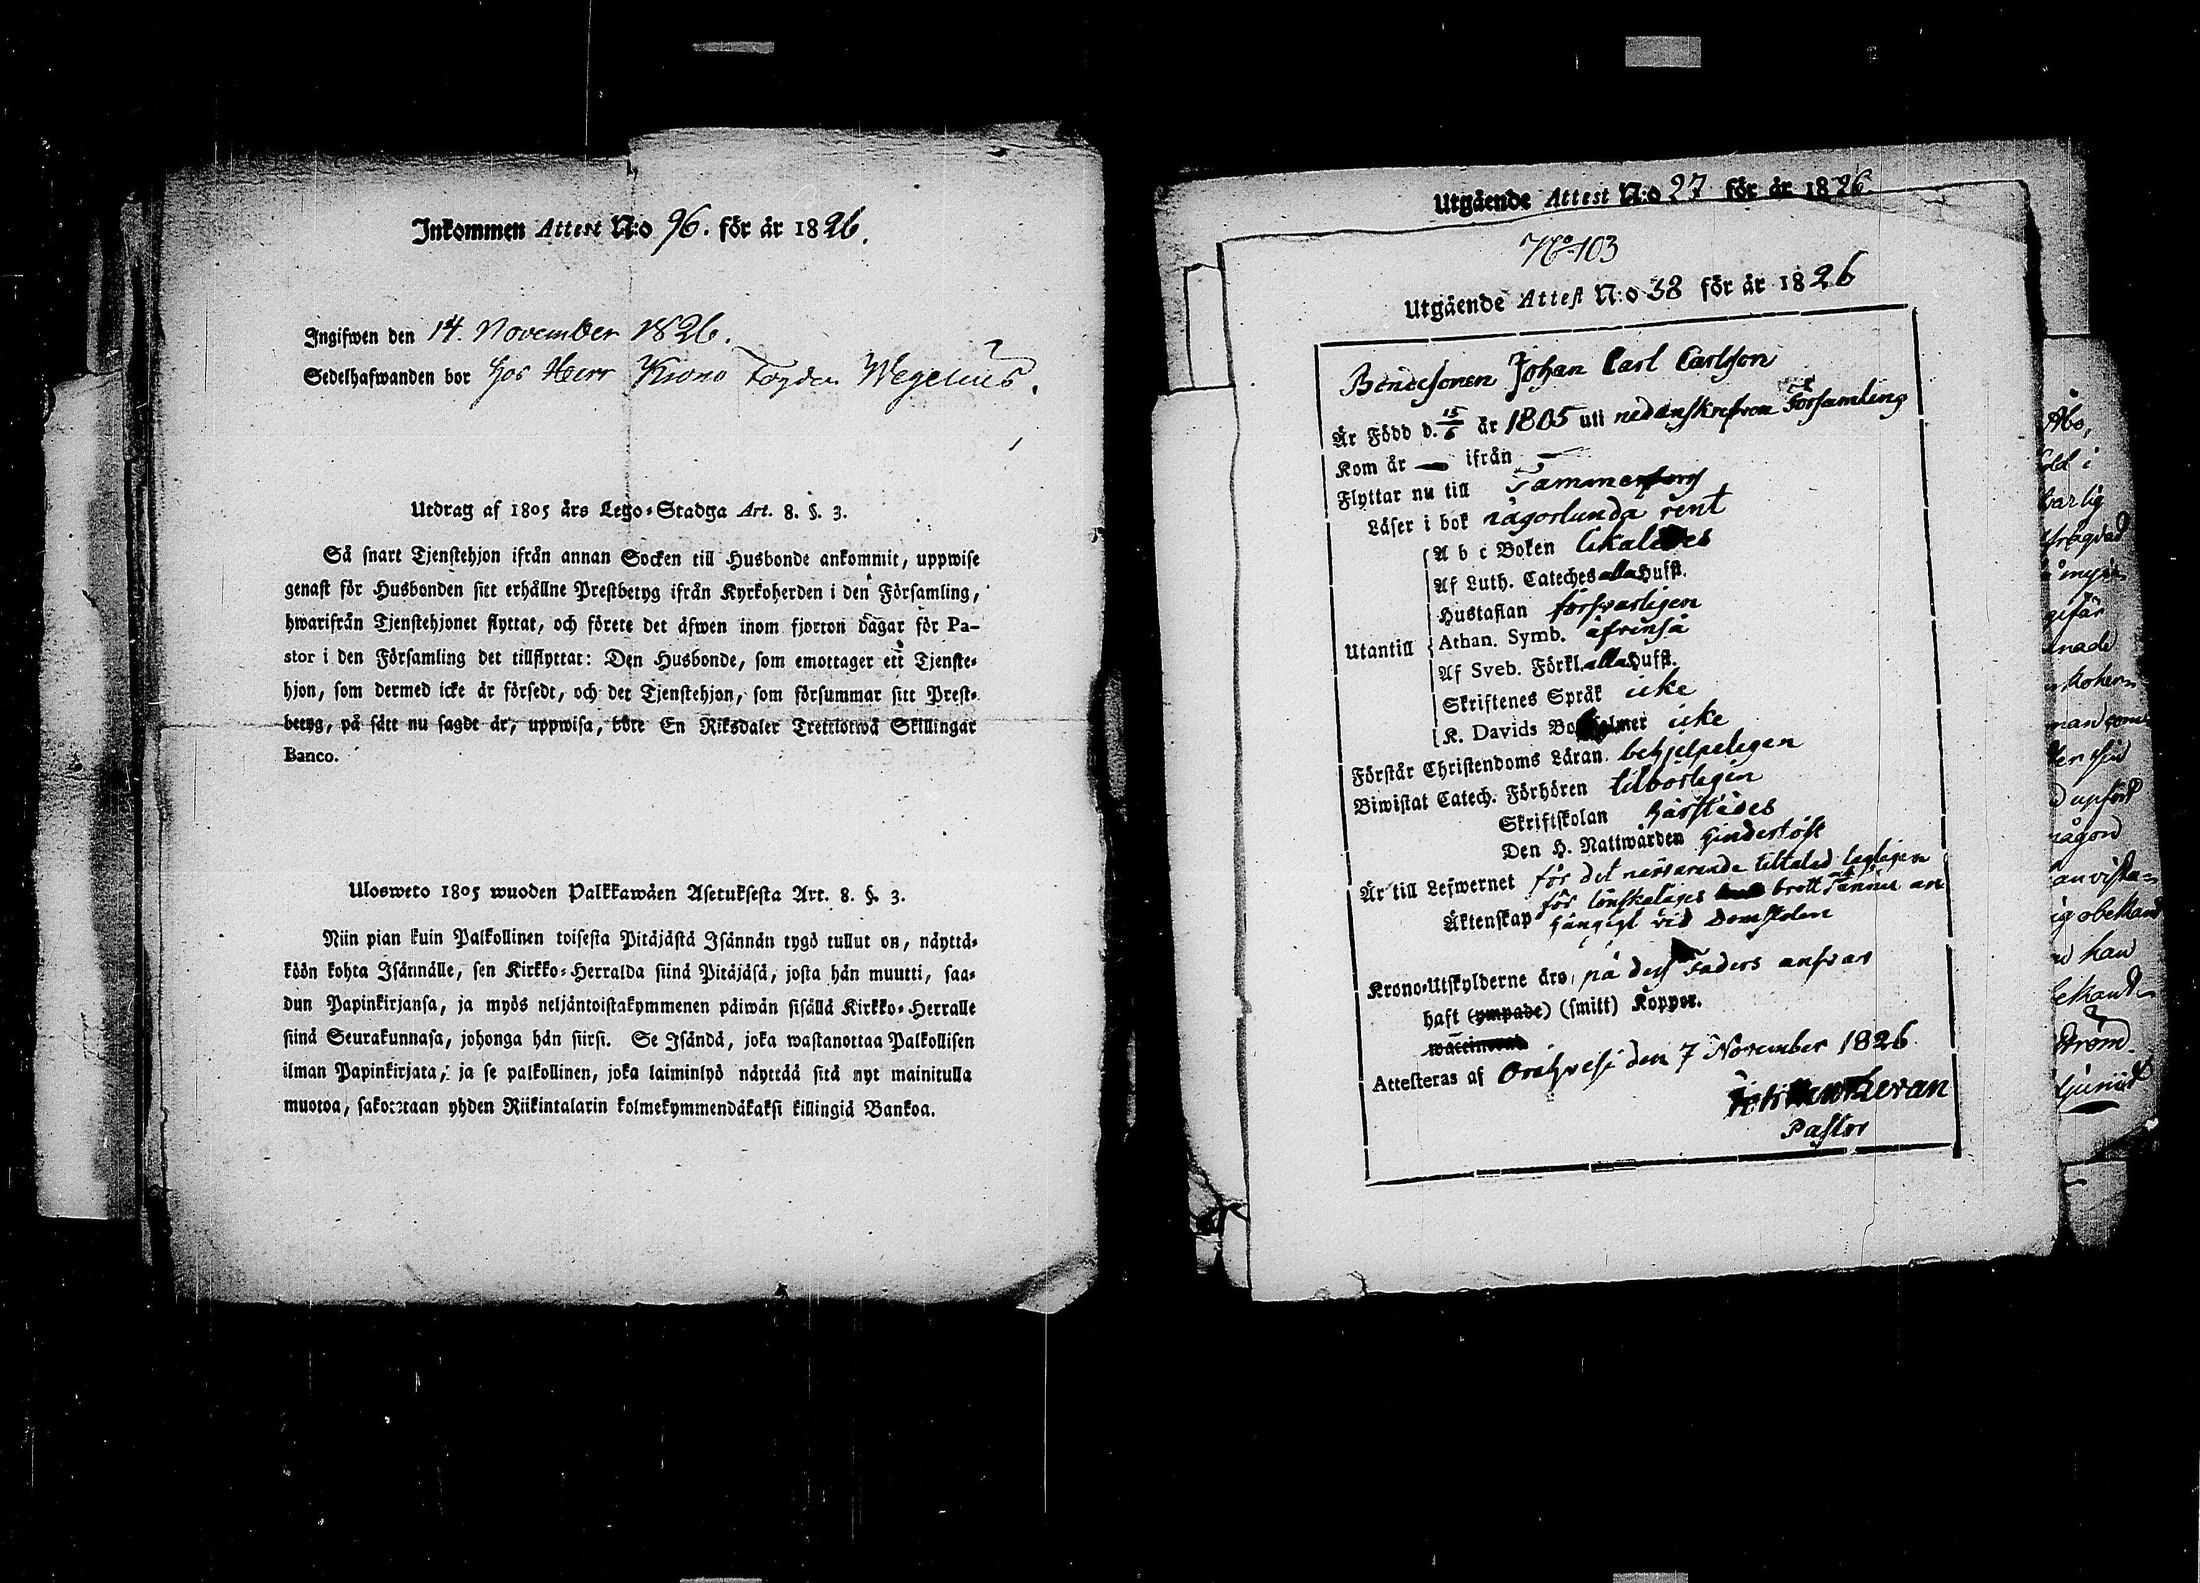 Inkommen Attest N:o 96. för år 1826.
Ingifwen den 14. November 1826.
Sedelhafwanden bor hos Herr Krono Fogden Wegelius.
Utdrag af 1805 års Lego-Stadga Art. 8. §. 3.
Så snart Tjenstehjon ifrån annan Socken till Husbonde ankommit, uppwise
genast för Husbonden sitt erhållne Prestbetyg ifrån Kyrkoherden i den Församling,
hwarifrån Tjenstehjonet flyttat, och förete det äfwen inom fjorton dagar för Pa-
stor i den Församling det tillflyttat: Den Husbonde, som emottager ett Tjenste-
hjon, som dermed icke är försedt, och det Tjenstehjon, som försummar sitt Prest-
betyg, på sätt nu sagdt är, uppwisa, böte En Riksdaler Trettiotwå Skillingar
Banco.
Ulosweto 1805 wuoden Palkkawäen Asetuksesta Art. 8. §. 3.
Niin pian kuin Palkollinen toisesta Pitäjästä Isännän tygö tullut on, näyttä-
köön kohta Isännälle, sen Kirkko-Herralda siinä Pitäjäsä, josta hän muutti, saa-
dun Papinkirjansa, ja myös neljäntoistakymmenen päiwän sisällä Kirkko-Herralle
siinä Seurakunnasa, johonga hän siirsi. Se Isändä, joka wastanottaa Palkollisen
ilman Papinkirjata, ja se palkollinen, joka laiminlyö näyttää sitä nyt mainitulla
muotoa, sakotetaan yhden Riikintalarin kolmekymmendäkaksi killingiä Bankoa.
Utgående Attest N:o 27 för år 1826
No 103
Utgående Attest N:o 38 för år 1826
Bondesonen Johan Carl Carlsson
Är Född d. 15/6 år 1805 uti nedanskrefven Församling
Kom år — ifrån —
Flyttar nu till Tammerfors
Läser i bok någorlunda rent
A b c Boken likaledes
Af Luth. Cateches alla Hufst.
Hustaflan försvarligen
Utantill Athan. Symb. äfvenså
Af Sveb. Förkl. alla Hufst.
Skriftenes Språk icke
K. Davids Botpsalmer icke
Förstår Christendoms Läran behjelpeligen
Biwistat Catech. Förhören tilbörligen
Skriftskolan härstädes
Den H. Nattwarden hinderlöst
Är till Lefwernet för det närvarande tiltalad lagligen
för lönskaläges brott ännu an
Äktenskap hängigt vid Domstolen
Krono-Utskylderne äro på dess Faders ansvar
haft (ympade) (smitt) Koppor.
waccinerad
Attesteras af Orihvesi den 7 November 1826
Pastor
Åbo,